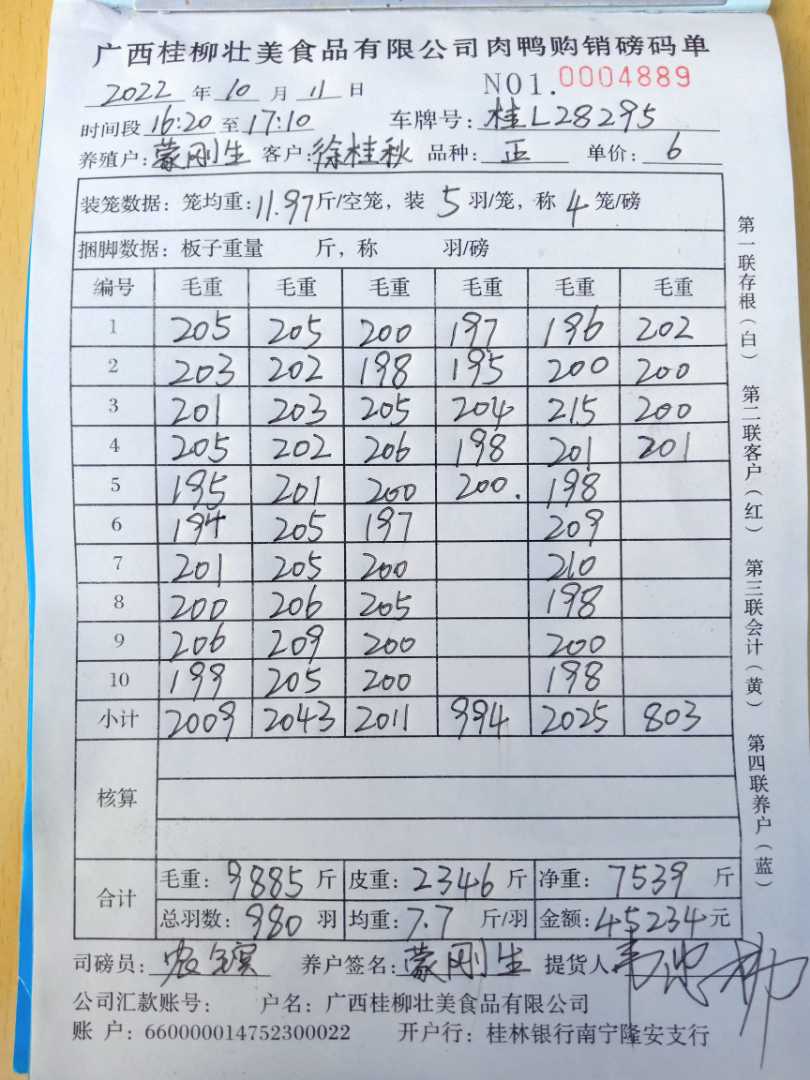 广西桂柳壮美食品有限公司肉鸭购销磅码单
2022 年 10 月 11 日 NO1.0004889
时间段 16:20 至 17:10 车牌号: 桂L28295
养殖户: 蒙刚生 客户: 徐桂秋 品种: 正 单价: 6
装笼数据: 笼均重: 11.97 斤/空笼, 装 5 羽/笼, 称 4 笼/磅
捆脚数据: 板子重量 斤, 称 羽/磅
编号 毛重 毛重 毛重 毛重 毛重 毛重
1 205 205 200 197 196 202
2 203 202 198 195 200 200
3 201 203 205 204 215 200
4 205 202 206 198 201 201
5 195 201 200 200. 198
6 194 205 197 209
7 201 205 200 210
8 200 206 205 198
9 206 209 200 200
10 199 205 200 198
小计 2009 2043 2011 994 2025 803
核算
合计 毛重: 9885 斤 皮重: 2346 斤 净重: 7539 斤
总羽数: 980 羽 均重: 7.7 斤/羽 金额: 45234 元
司磅员: 养户签名: 蒙刚生 提货人
公司汇款账号: 户名: 广西桂柳壮美食品有限公司
账 户: 660000014752300022 开户行: 桂林银行南宁隆安支行
第一联存根(白) 第二联客户(红) 第三联会计(黄) 第四联养户(蓝)